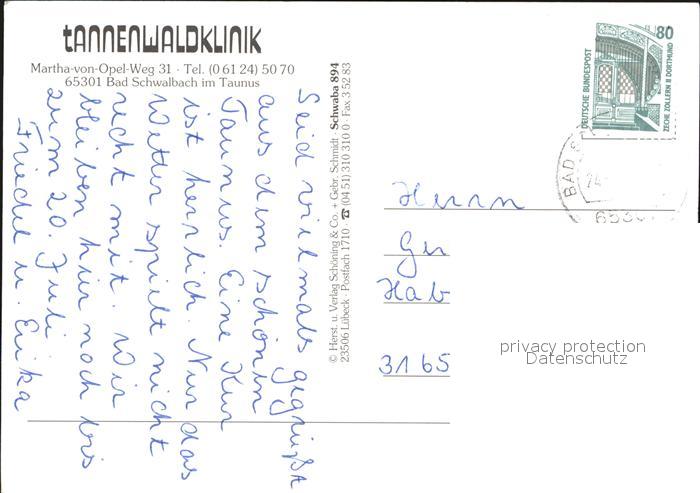 TANNENWALDKLINIK
Martha-von-Opel-Weg 31 · Tel. (0 61 24) 50 70
65301 Bad Schwalbach im Taunus
Seid vielmals gegrüßt
aus dem schönen
Taunus. Eine Kur
ist herrlich. Nur das
Wetter spielt nicht
recht mit. Wir
bleiben hier noch bis
zum 20. Juli
Friedel u. Erika
© Herst. u. Verlag Schöning & Co. + Gebr. Schmidt · Schwaba 894
23506 Lübeck · Postfach 1710 · ☎ (04 51) 310 310 0 · Fax 3 52 83
80
DEUTSCHE BUNDESPOST
ZECHE ZOLLERN II DORTMUND
BAD S
24.
65307
Herrn
Ger
Hab
3165
privacy protection
Datenschutz